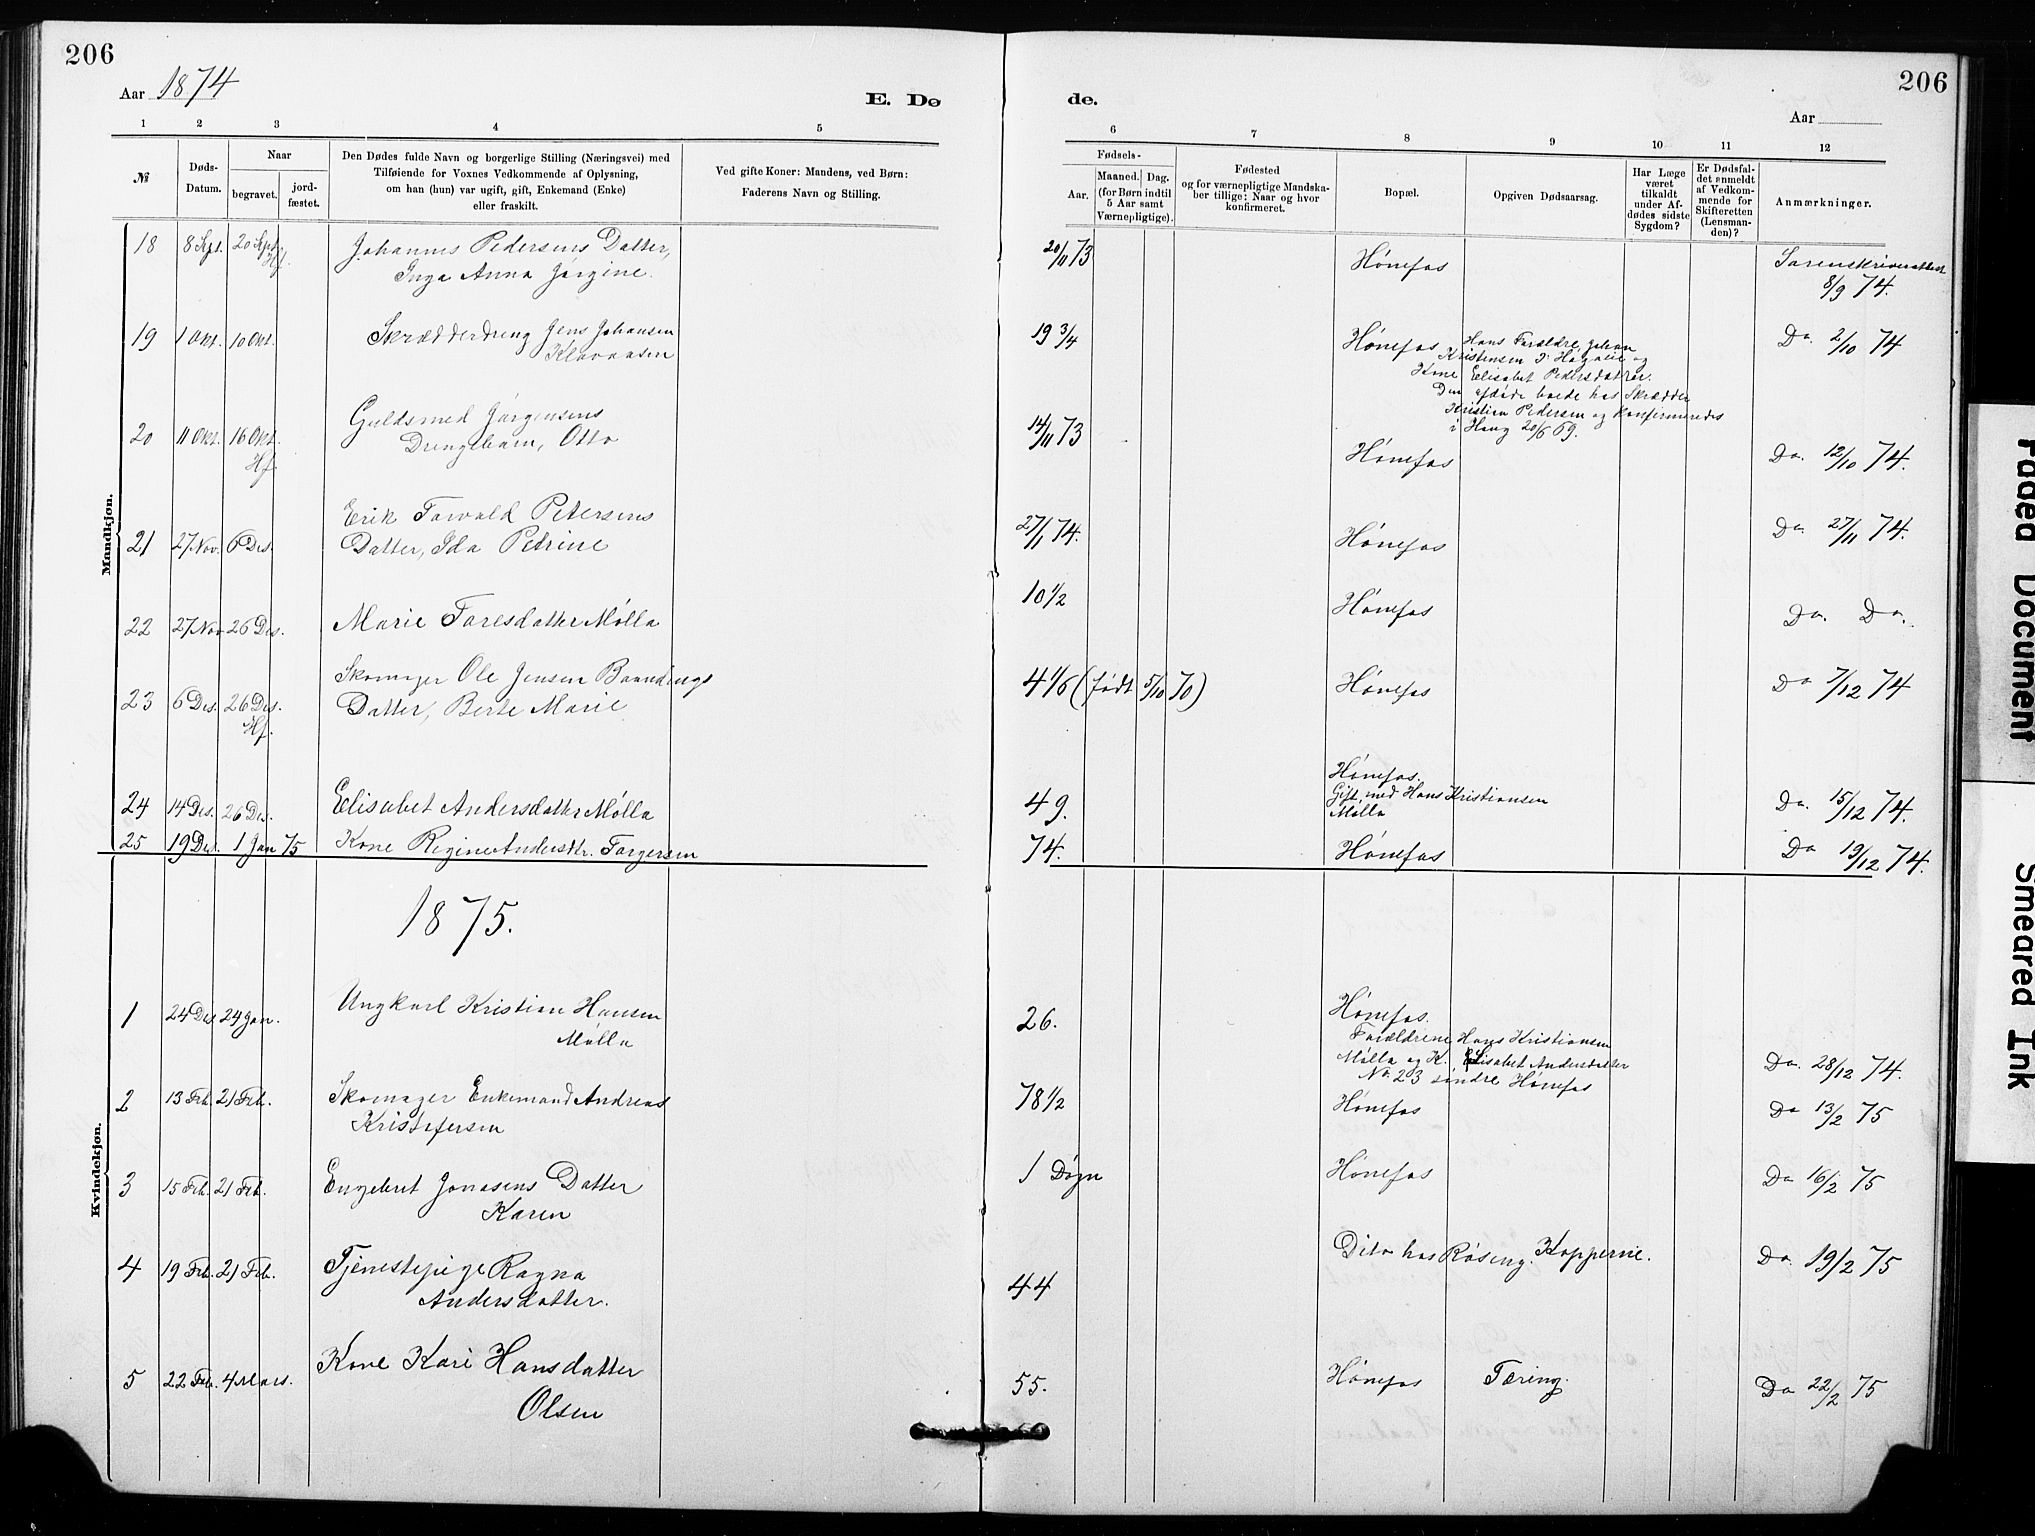 206
206
Aar 1874
E. Dø
de.
Aar
1 2 3 4 5
6 7 8 9 10 11 12
№
Døds-
Datum.
Naar
begravet.
jord-
fæstet.
Den Dødes fulde Navn og borgerlige Stilling (Næringsvei) med
Tilføiende for Voxnes Vedkommende af Oplysning,
om han (hun) var ugift, gift, Enkemand (Enke)
eller fraskilt.
Ved gifte Koner: Mandens, ved Børn:
Faderens Navn og Stilling.
Fødsels-
Aar.
Maaned. Dag.
(for Børn indtil
5 Aar samt
Værnepligtige).
Fødested
og for værnepligtige Mandska-
ber tillige: Naar og hvor
konfirmeret.
Bopæl.
Opgiven Dødsaarsag.
Har Læge
været
tilkaldt
under Af-
dødes sidste
Sygdom?
Er Dødsfal-
det anmeldt
af Vedkom-
mende for
Skifteretten
(Lensman-
den)?
Anmærkninger.
Mandkjøn.
18 8 Sept. 20 Sept. Hf. Johannes Pedersens Datter,
Inga Anna Jørgine.
20/11 73 Hønefos Sorenskriverattest
8/9 74.
19 1 Okt. 10 Okt. Skrædderdreng Jens Johansen
Klavaasen
19 3/4 Hønefos Hans Forældre, Johan
Kristensen og
Kone Elisabet Pedersdatter.
Den afdøde boede hos Skrædder
Kristian Pedersen og Konfirmeredes
i Haug 20/6 69.
Do. 2/10 74
20 11 Okt. 16 Okt. Hf. Guldsmed Jørgensens
Drengebarn, Otto
14/11 73 Hønefos Do. 12/10 74.
21 27 Nov. 6 Des. Erik Torvald Petersens
Datter, Ida Petrine
27/1 74. Hønefos Do. 27/11 74.
22 27 Nov 26 Des. Marie Toresdatter Mølla
10 1/2 Hønefos Do. Do.
23 6 Des. 26 Des. Hf. Skomager Ole Jensen
Datter, Berte Marie
4 1/6 (født 5/10 70) Hønefos Do 7/12 74
24 14 Des. 26 Des. Elisabet Andersdatter Mølla
49. Hønefos.
Gift med Hans Kristiansen
Mølla
Do. 15/12 74.
25 19 Des. 1 Jan 75 Kone Regine Andersdtr. Torgersen
74. Hønefos Do 19/12 74.
1875.
Kvindekjøn.
1 24 Des 24 Jan. Ungkarl Kristian Hansen
Mølla
26. Hønefos.
Forældrene Hans Kristiansen
Mølla og K. Elisabet Andersdatter
No. 23 søndre Hønefos
Do. 28/12 74.
2 13 Feb. 21 Feb. Skomager Enkemand Andreas
Kristofersen
78 1/2 Hønefos Do 13/2 75
3 15 Feb. 21 Feb. Engebret Jonasens Datter
Karen
1 Døgn Hønefos Do 16/2 75
4 19 Feb. 21 Feb. Tjenestepige Ragna
Andersdatter.
44 Dito hos Røseng. Kopperne. Do. 19/2 75
5 22 Feb. 4 Mars. Kone Kari Hansdatter
Olsen
55. Hønefos Tæring. Do 22/2 75
Faded Document
Smeared Ink